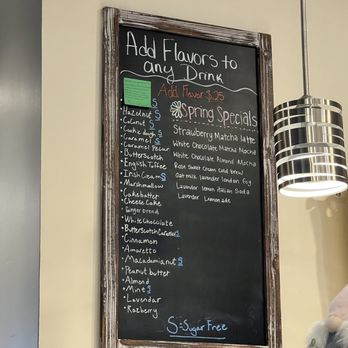 Add Flavors to
any Drink
Add Flavor $.25
S
Hazelnut S
Coconut S
Cookie dough S
Caramel S
Caramel Pecan
Butterscotch
English Toffee
Irish Cream S
Marshmallow
Cake batter
Cheese Cake
Ginger bread
White Chocolate
Butterscotch Caramel
Cinnamon
Amaretto
Macadamia nut S
Peanut butter
Almond
Mint S
Lavendar
Razberry
Spring Specials
Strawberry Matcha latte
White Chocolate Matcha Mocha
White Chocolate Almond Mocha
Rose Sweet Cream Cold brew
Oat milk lavender London fog
Lavender lemon italian Soda
Lavender Lemonade
S-Sugar Free